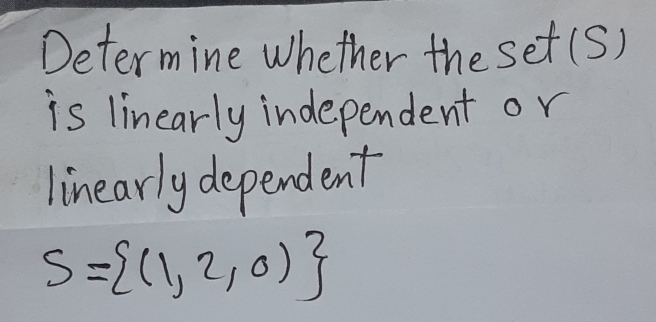 Determine whether the set (S)
is linearly independent or
linearly dependent
S={(1, 2, 0)}